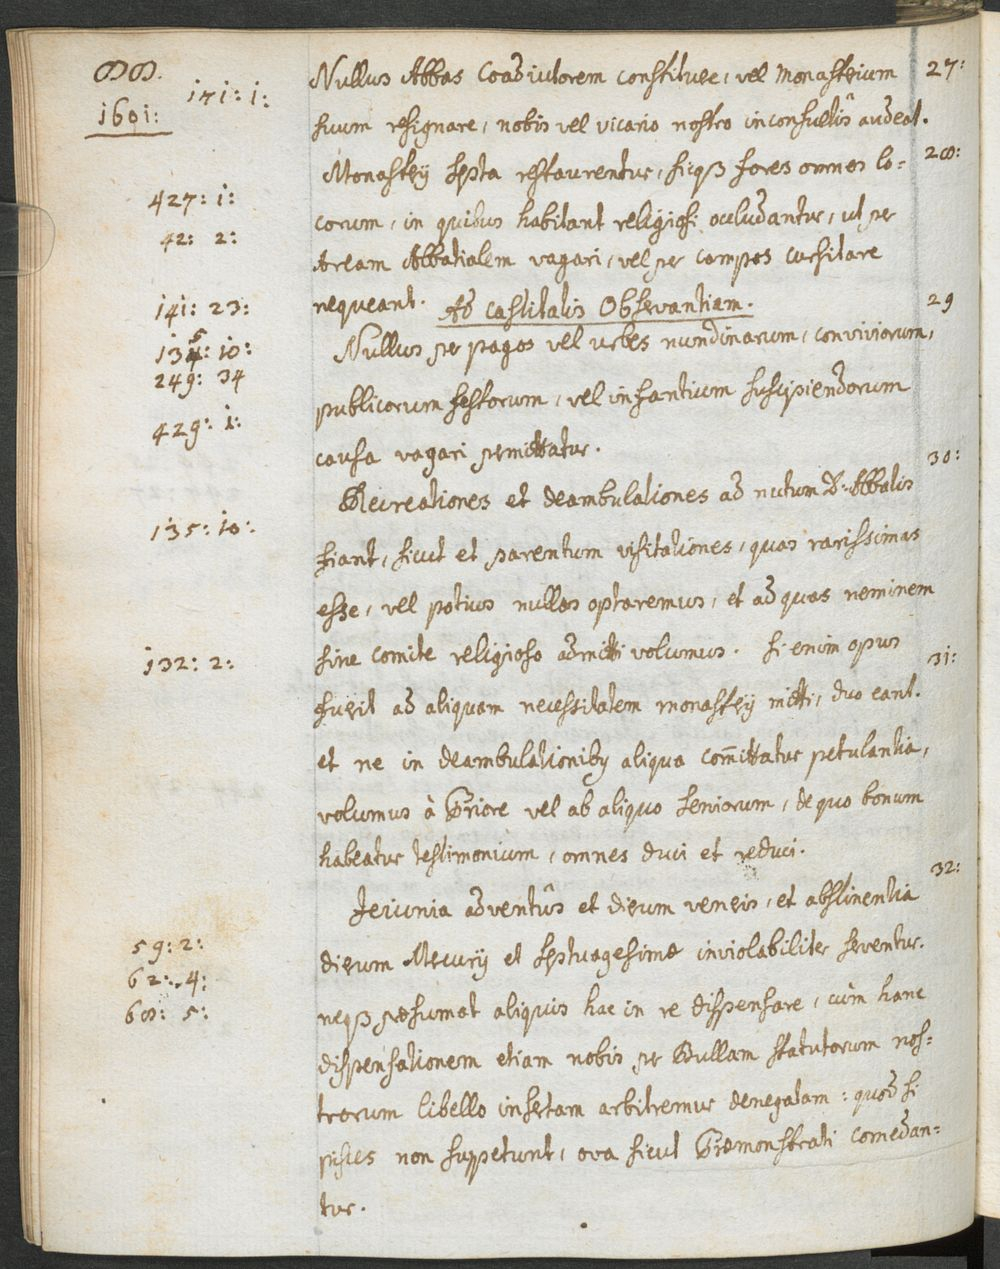 88.
1601:
171: 1:
Nullus Abbas Coadiutorem constituere, vel Monasterium 27:
suum resignare, nobis vel vicario nostro inconsultis audeat.
Monasterij septa restaurentur, sicqȝ fores omnes lo= 28:
427: 1:
corum, in quibus habitant religiosi occludantur, ut per
42: 2:
Aream Abbatialem vagari, vel per campos cursitare
141: 23:
nequeant. Ad castitatis Observantiam. 29
135: 10:
Nullus per pagos vel urbes nundinarum, conviviorum,
249: 34
publicorum festorum, vel infantium suscipiendorum
429: 1:
causa vagari permittatur.
Recreationes et deambulationes ad nutum D. Abbatis 30:
135: 10:
fiant, sicut et parentum visitationes, quas rarissimas
esse, vel potius nullas optaremus, et ad quas neminem
132: 2:
sine comite religioso admitti volumus. Si enim opus 31:
fuerit ad aliquam necessitatem monasterij mitti, duo eant.
et ne in deambulationibꝰ aliqua com̄ittatur petulantia,
volumus à Priore vel ab aliquo seniorum, de quo bonum
habeatur testimonium, omnes duci et reduci.
Jeiunia adventûs et dierum veneris, et abstinentia 32:
59: 2:
dierum Mercurij et septuagesimæ inviolabiliter serventur.
62: 4:
neqȝ præsumat aliquis hac in re dispensare, cùm hanc
68: 5:
dispensationem etiam nobis per Bullam statutorum nos=
trorum libello insertam arbitremur denegatam: quòd si
pisces non suppetunt, ova sicut Præmonstrati comedan=
tur.